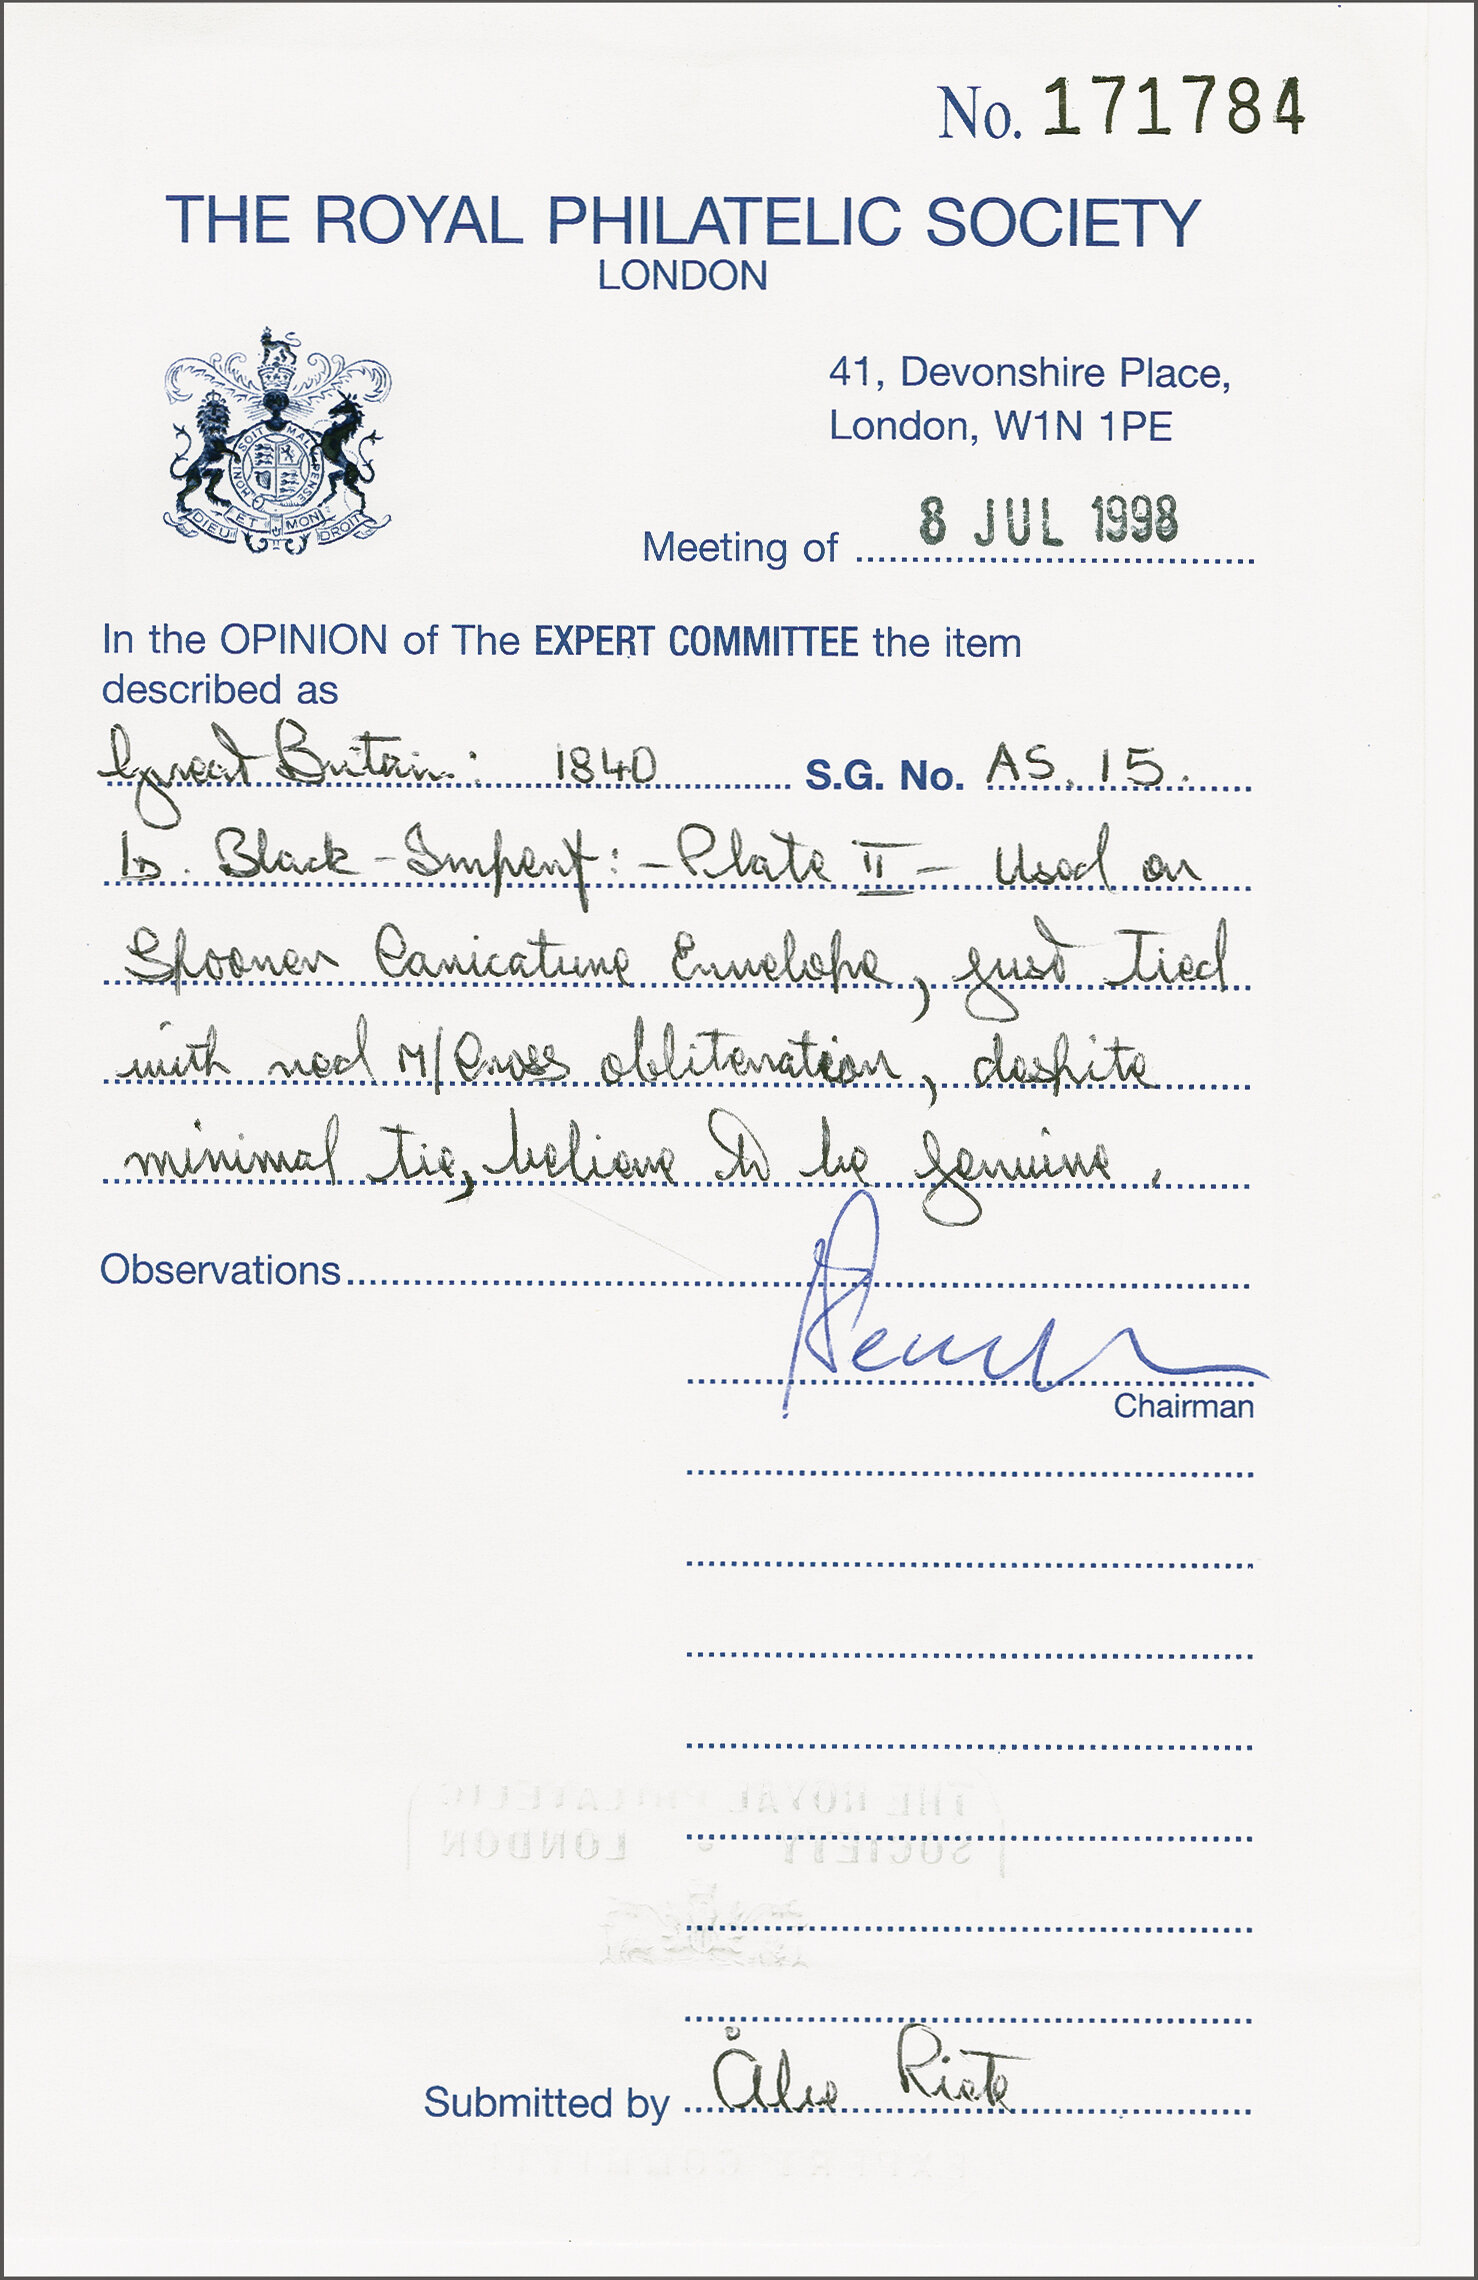 No. 171784
THE ROYAL PHILATELIC SOCIETY
LONDON
41, Devonshire Place,
London, W1N 1PE
HONI SOIT MAL PENSE
DIEU ET MON DROIT
Meeting of 8 JUL 1998
In the OPINION of The EXPERT COMMITTEE the item
described as
Great Britain: 1840 S.G. No. AS. 15.
1D. Black - Imperf: - Plate II - Used on
Spooner Caricature Envelope, just tied
with red M/Cross obliteration, despite
minimal tie, believe to be genuine.
Observations
Chairman
THE ROYAL PHILATELIC
SOCIETY LONDON
Submitted by